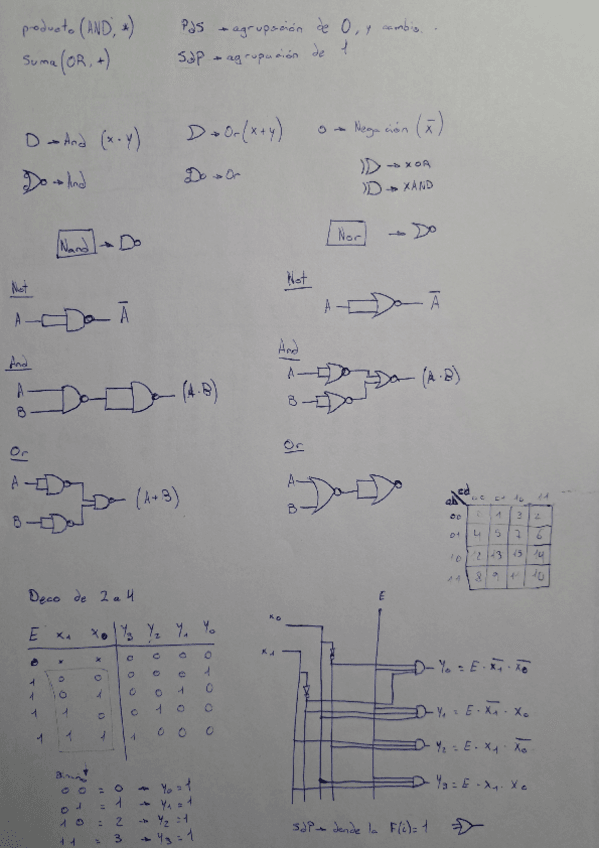 producto (AND, *)
Suma (OR, +)
PdS → agrupación de 0, y cambio.
SdP → agrupación de 1
→ And (x · y)
→ Or (x+y)
o → Negación (x̅)
→ And
→ Or
→ XOR
→ XAND
Nand →
Nor →
Not
A A̅
Not
A A̅
And
A
B
(A·B)
And
A
B
(A·B)
Or
A
B
(A+B)
Or
A
B
ab cd
00 1 3 2
01 4 5 7 6
10 12 13 15 14
11 8 9 11 10
Deco de 2 a 4
E x1 x0 y3 y2 y1 y0
0 x x 0 0 0 0
1 0 0 0 0 0 1
1 0 1 0 0 1 0
1 1 0 0 1 0 0
1 1 1 1 0 0 0
00 = 0 → y0=1
01 = 1 → y1=1
10 = 2 → y2=1
11 = 3 → y3=1
E
x0
x1
y0 = E · x̅1 · x̅0
y1 = E · x̅1 · x0
y2 = E · x1 · x̅0
y3 = E · x1 · x0
SdP → donde la F(i)=1